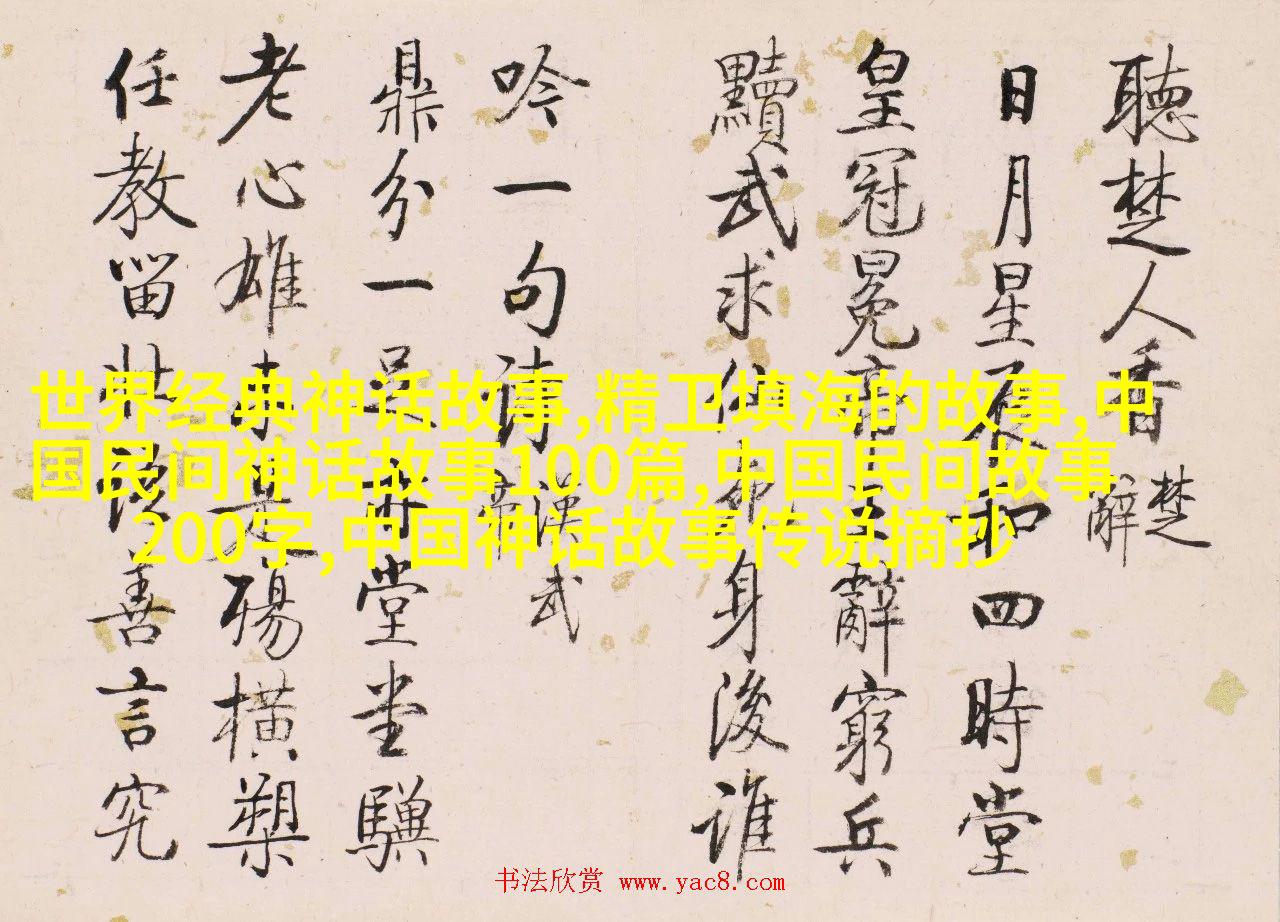 聽楚人香
楚
辭
日月星辰和四時堂
皇冠冕高言辭窮兵
黷武求仙布身後誰
吟一句清
漢武
帝
鼎分一足券堂堂驥
老心雄未是殤橫槊
任教留壯語善言究
世界经典神话故事,精卫填海的故事,中
国民间神话故事100篇,中国民间故事
200字,中国神话故事传说摘抄
书法欣赏 www.yac8.com